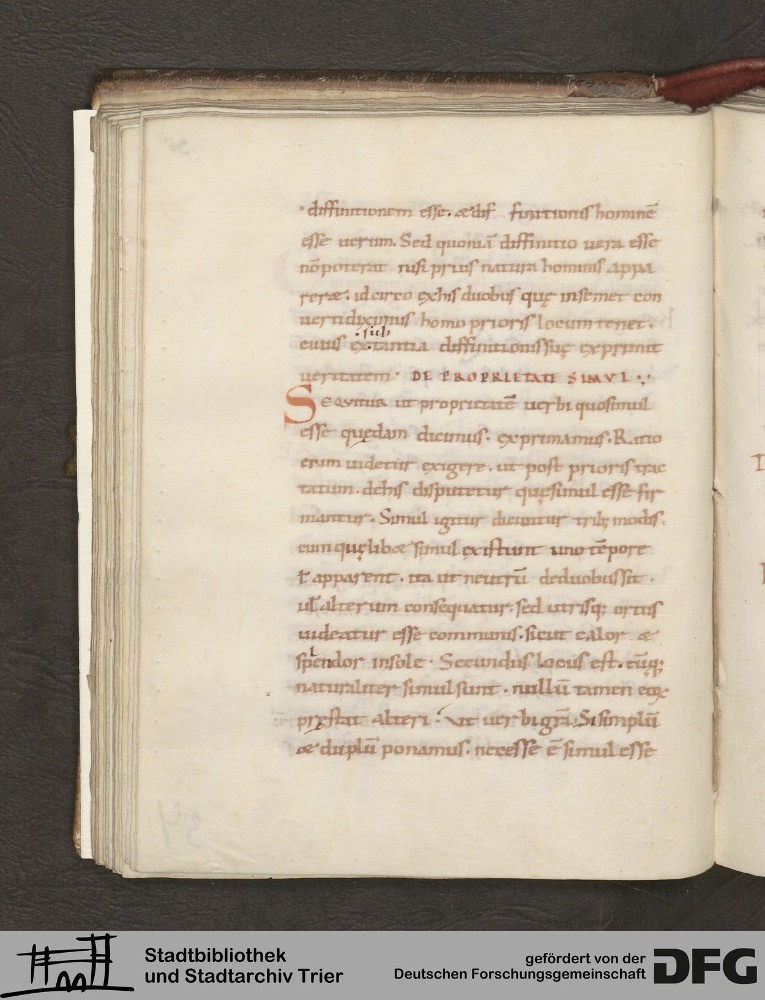 · diffinitionem esse. & dif finitionis hominē
esse uerum. Sed quoniā diffinitio uera esse
nō poterat nisi prius natura hominis appa
rer&. idcirco ęx his duobus quę insemet con
uerti diximus homo prioris locum tenet.
cuius ęx·tantia diffinitionis suę ęxprimit
·sub
ueritatem· DE PROPRIETATE SIMUL ·.·
SEQVITUR ut proprietatē uerbi quo simul
esse quędam dicimus. ęxprimamus. Ratio
enim uidetur ęxigere. ut post prioris trac
tatum. dehis disputetur quę simul esse fir
mantur. Simul igitur dicuntur trib; modis.
cum quęlib& simul ęxistunt uno tēpore
ł apparent. ita ut neutrū deduobus sit.
uł alterum consequatur. sed utrisq; ortus
uideatur esse communis. sicut calor &
splendor insole. Secundus locus est. cūq;
naturaliter simul sunt. nullū tamen eor
pręstat alteri. Vt uerbi grā. Si simplū
& duplū ponamus. necesse ē simul esse
34
Stadtbibliothek
und Stadtarchiv Trier
gefördert von der
Deutschen Forschungsgemeinschaft
DFG